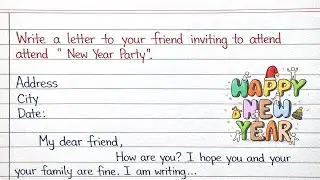 Write a letter to your friend inviting to attend
attend " New Year Party".
Address
City
Date:
HAPPY
NEW
YEAR
My dear friend,
How are you? I hope you and your
your family are fine. I am writing...